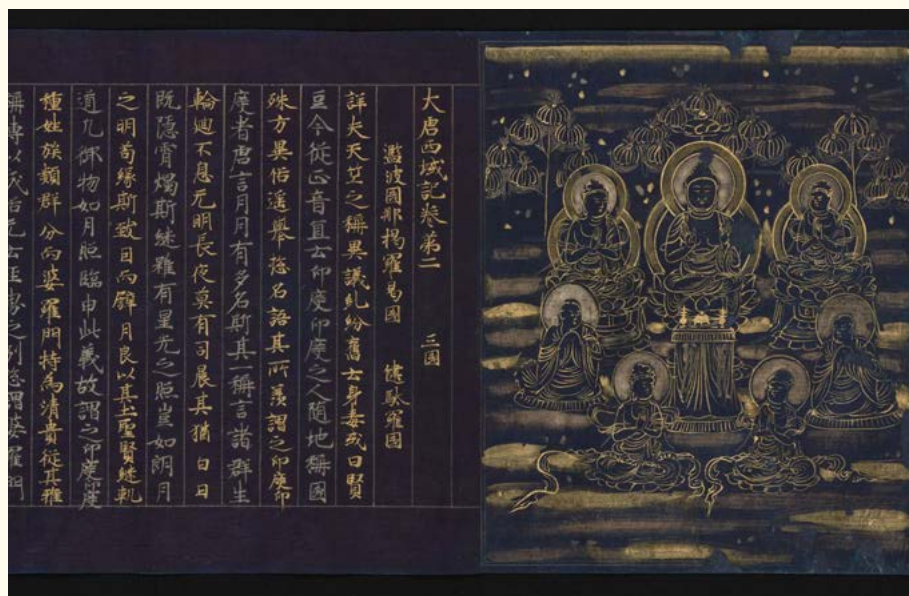 大唐西域記卷第二 三國
濫波國 那揭羅曷國 健馱羅國
詳夫天竺之稱異議糺紛舊云身毒或曰賢
豆今從正音宜云印度印度之人隨地稱國
殊方異俗遙舉惣名語其所美謂之印度印
度者唐言月月有多名斯其一稱言諸群生
輪迴不息无明長夜莫有司晨其猶白日
既隱宵燭斯継雖有星光之照豈如朗月
之明苟緣斯致因而譬月良以其土聖賢継軌
道凡御物如月照臨由此義故謂之印度度
種姓族類群分而婆羅門特為清貴從其雅
稱傳以成俗无云之別惣謂婆羅門